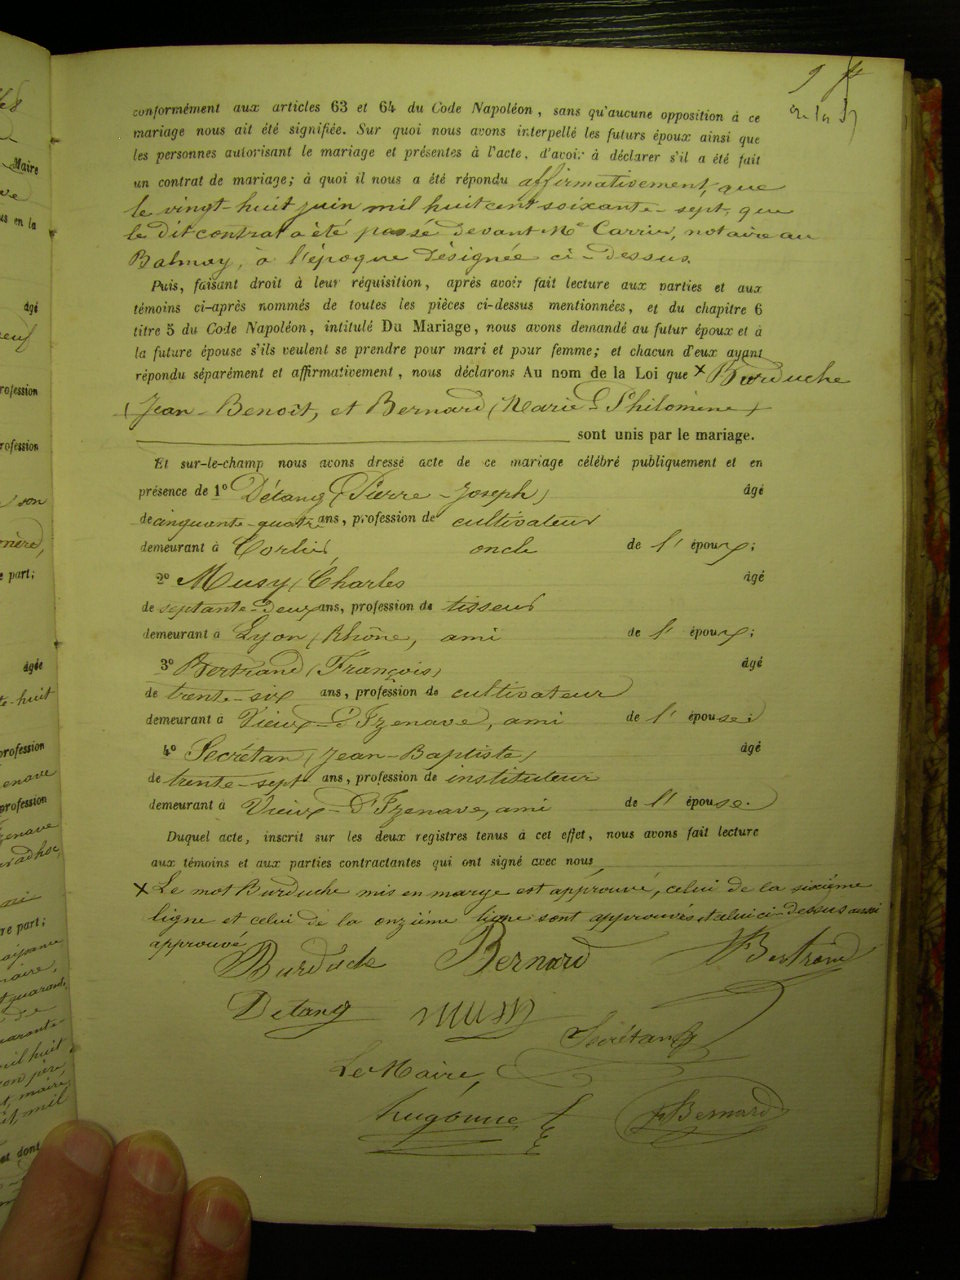 conformément aux articles 63 et 64 du Code Napoléon, sans qu'aucune opposition à ce
mariage nous ait été signifiée. Sur quoi nous avons interpellé les futurs époux ainsi que
les personnes autorisant le mariage et présentes à l'acte, d'avoir à déclarer s'il a été fait
un contrat de mariage; à quoi il nous a été répondu affirmativement, que
le vingt-huit juin mil huit cent soixante-sept, que
le dit contrat a été passé devant Me Carrier, notaire au
Balmay, à l'époque désignée ci-dessus.
Puis, faisant droit à leur réquisition, après avoir fait lecture aux parties et aux
témoins ci-après nommés de toutes les pièces ci-dessus mentionnées, et du chapitre 6
titre 5 du Code Napoléon, intitulé Du Mariage, nous avons demandé au futur époux et à
la future épouse s'ils veulent se prendre pour mari et pour femme; et chacun d'eux ayant
répondu séparément et affirmativement, nous déclarons Au nom de la Loi que x Burduche
(Jean-Benoît, et Bernard (Marie-Philomène)
sont unis par le mariage.
Et sur-le-champ nous avons dressé acte de ce mariage célébré publiquement et en
présence de 1o Détang (Pierre-Joseph) âgé
de cinquante-quatre ans, profession de cultivateur
demeurant à Corlier, oncle de l'époux;
2o Musy (Charles âgé
de septante-deux ans, profession de tisseur
demeurant à Lyon (Rhône, ami de l'époux;
3o Bertrand (François) âgé
de trente-six ans, profession de cultivateur
demeurant à Vieux-d'Izenave, ami de l'épouse;
4o Secrétan (Jean-Baptiste) âgé
de trente-sept ans, profession de instituteur
demeurant à Vieux-d'Izenave, ami de l'épouse.
Duquel acte, inscrit sur les deux registres tenus à cet effet, nous avons fait lecture
aux témoins et aux parties contractantes qui ont signé avec nous
x Le mot Burduche mis en marge est approuvé, celui de la sixième
ligne et celui de la onzième ligne sont approuvés et celui ci-dessus aussi
approuvé
Burduche Bernard Bertrand
Detang Musy
Secrétan
Le Maire,
Hugonne Bernard